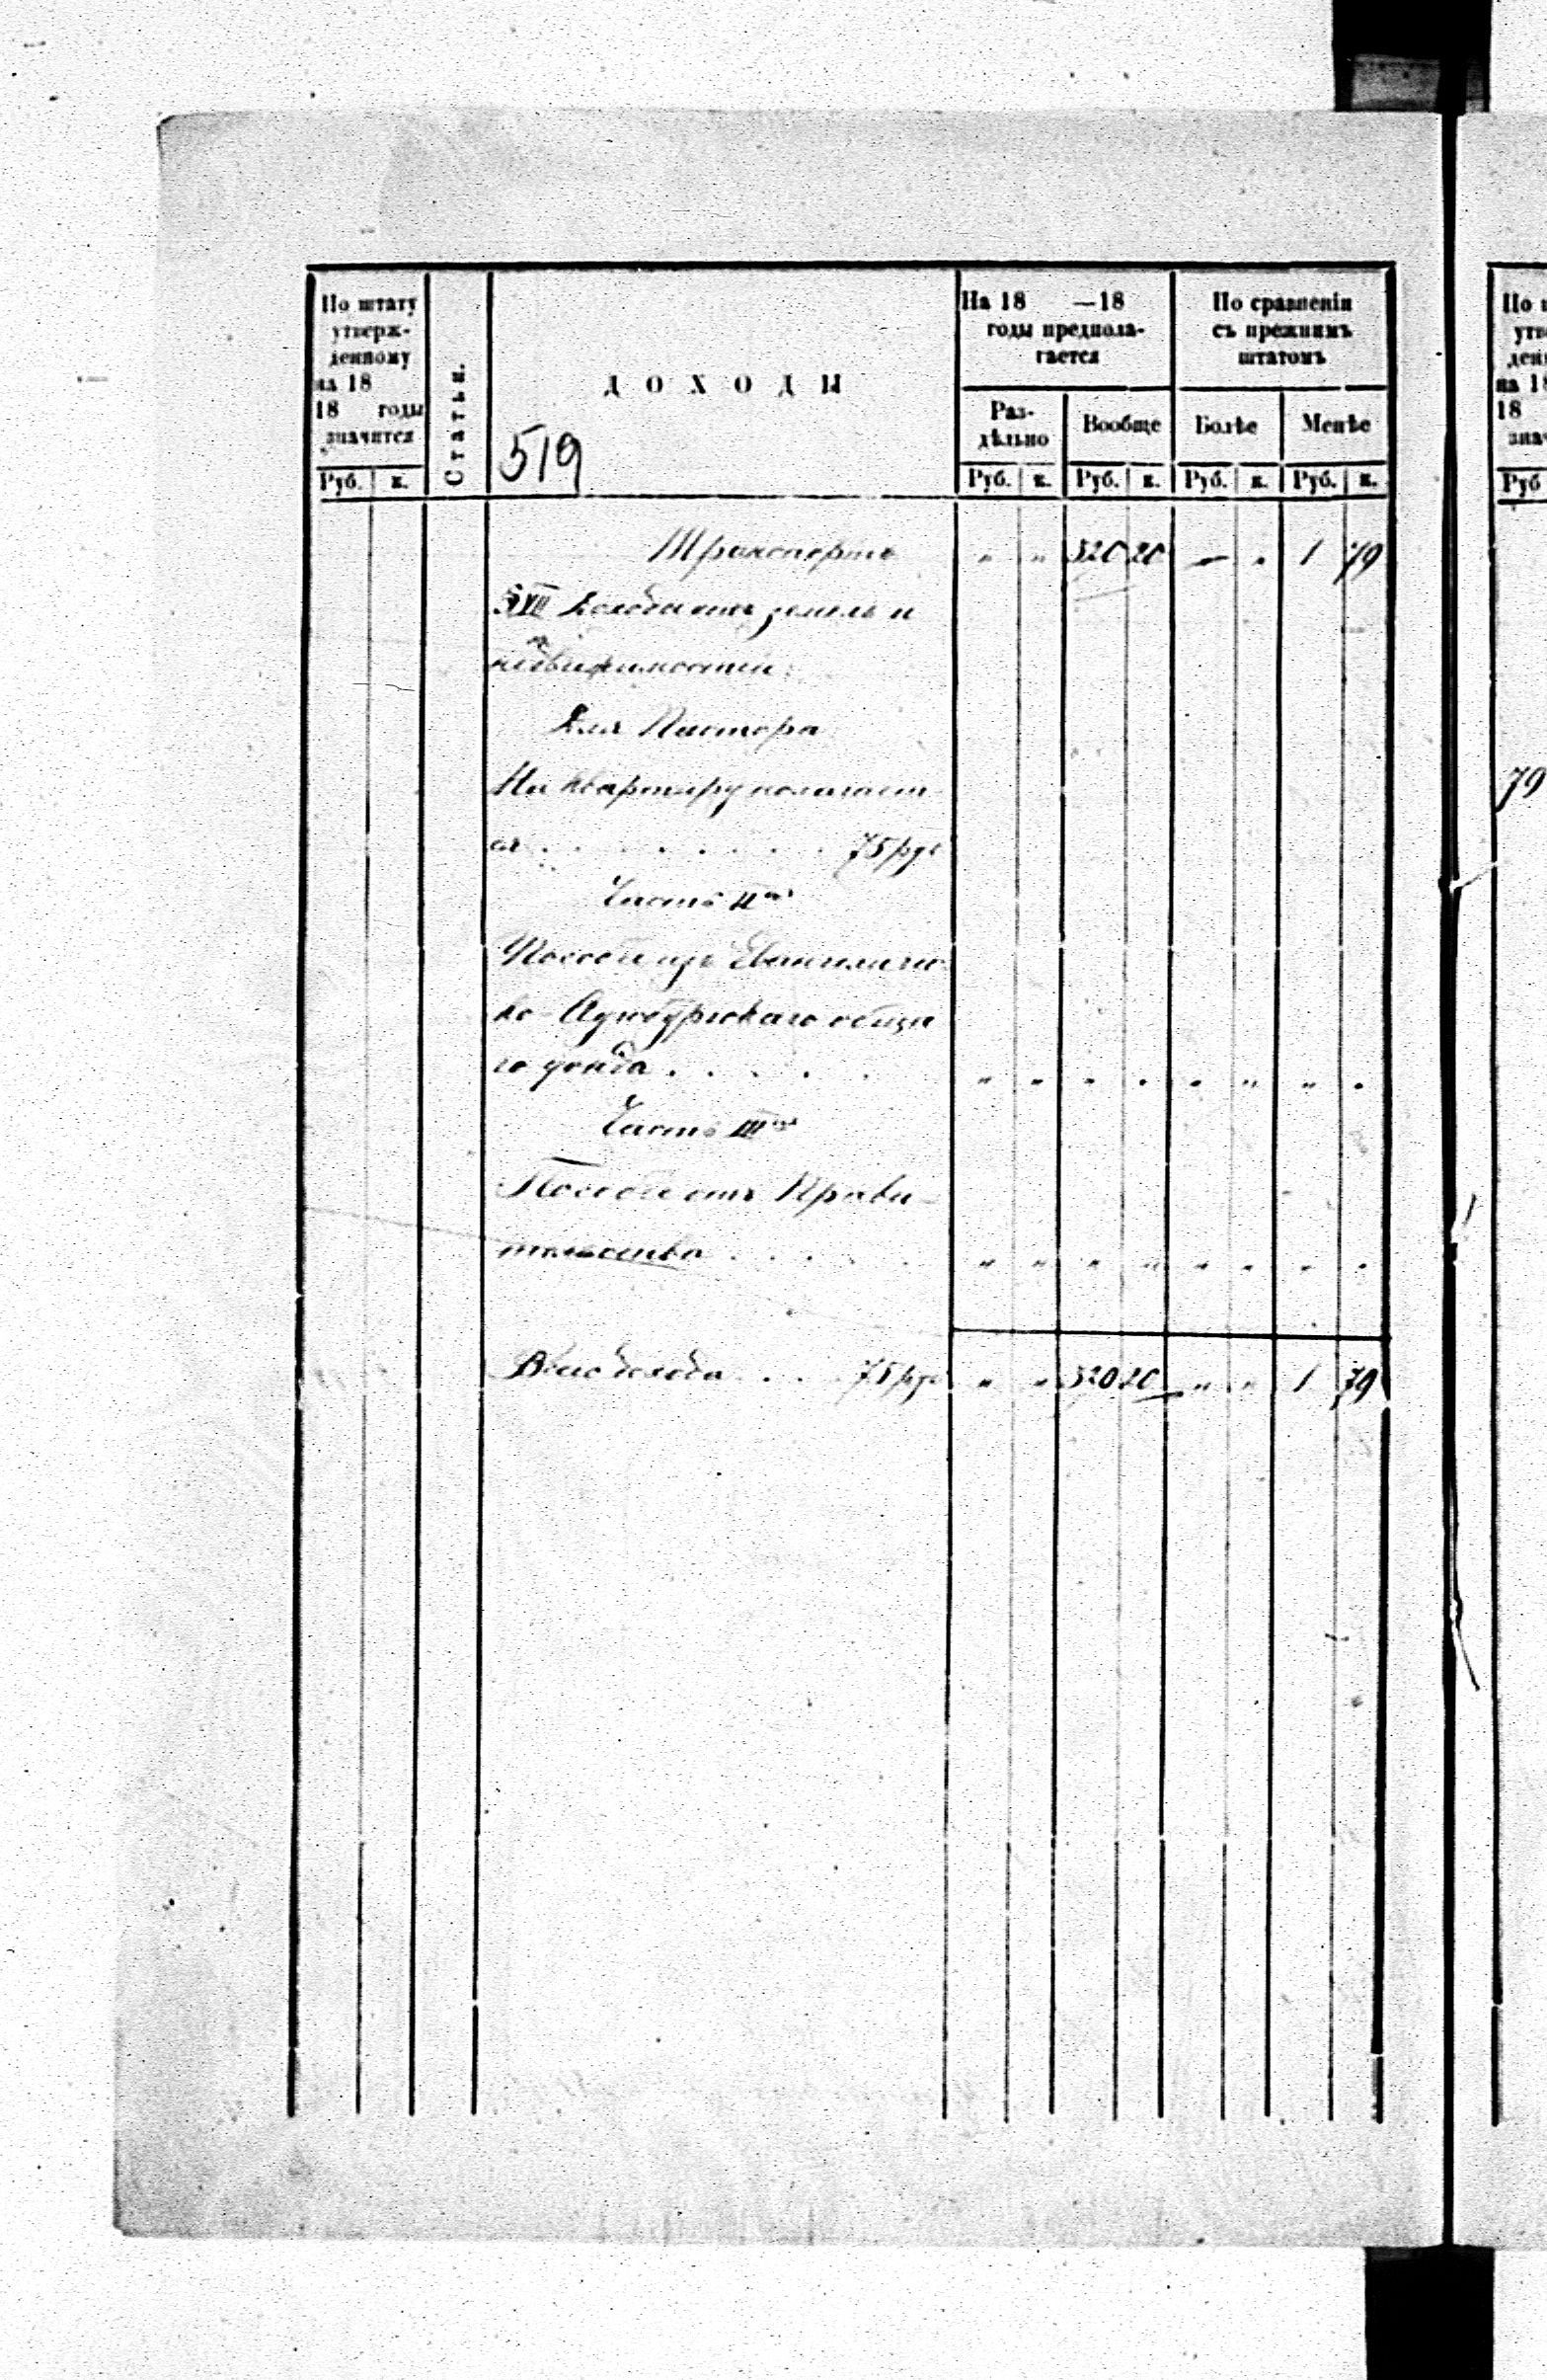 По штату
утверж-
денному
на 18
18 годы
значится
Руб. к.
Статьи.
ДОХОДЫ
519
На 18 —18
годы предпола-
гается
Раз-
дѣльно
Вообще
Руб. к. Руб. к.
По сравненіи
съ прежнимъ
штатомъ
Болѣе Менѣе
Руб. к. Руб. к.
Транспортъ „ „ 320 20 — „ 1 79
§ VII Доходы отъ земель и
недвижимостей:
Для Пастора
На квартиру полагает
ся . . . . . . . 75 руб
Часть IIая
Пособіе изъ Евангеличе
ко-Аугсбургскаго обща
го фонда . . . . . „ „ „ „ „ „ „ „
Часть IIIая
Пособіе отъ Прави-
тельства . . . . . „ „ „ „ „ „ „ „
Всего дохода . . . 75 руб „ „ 320 20 „ „ 1 79
79